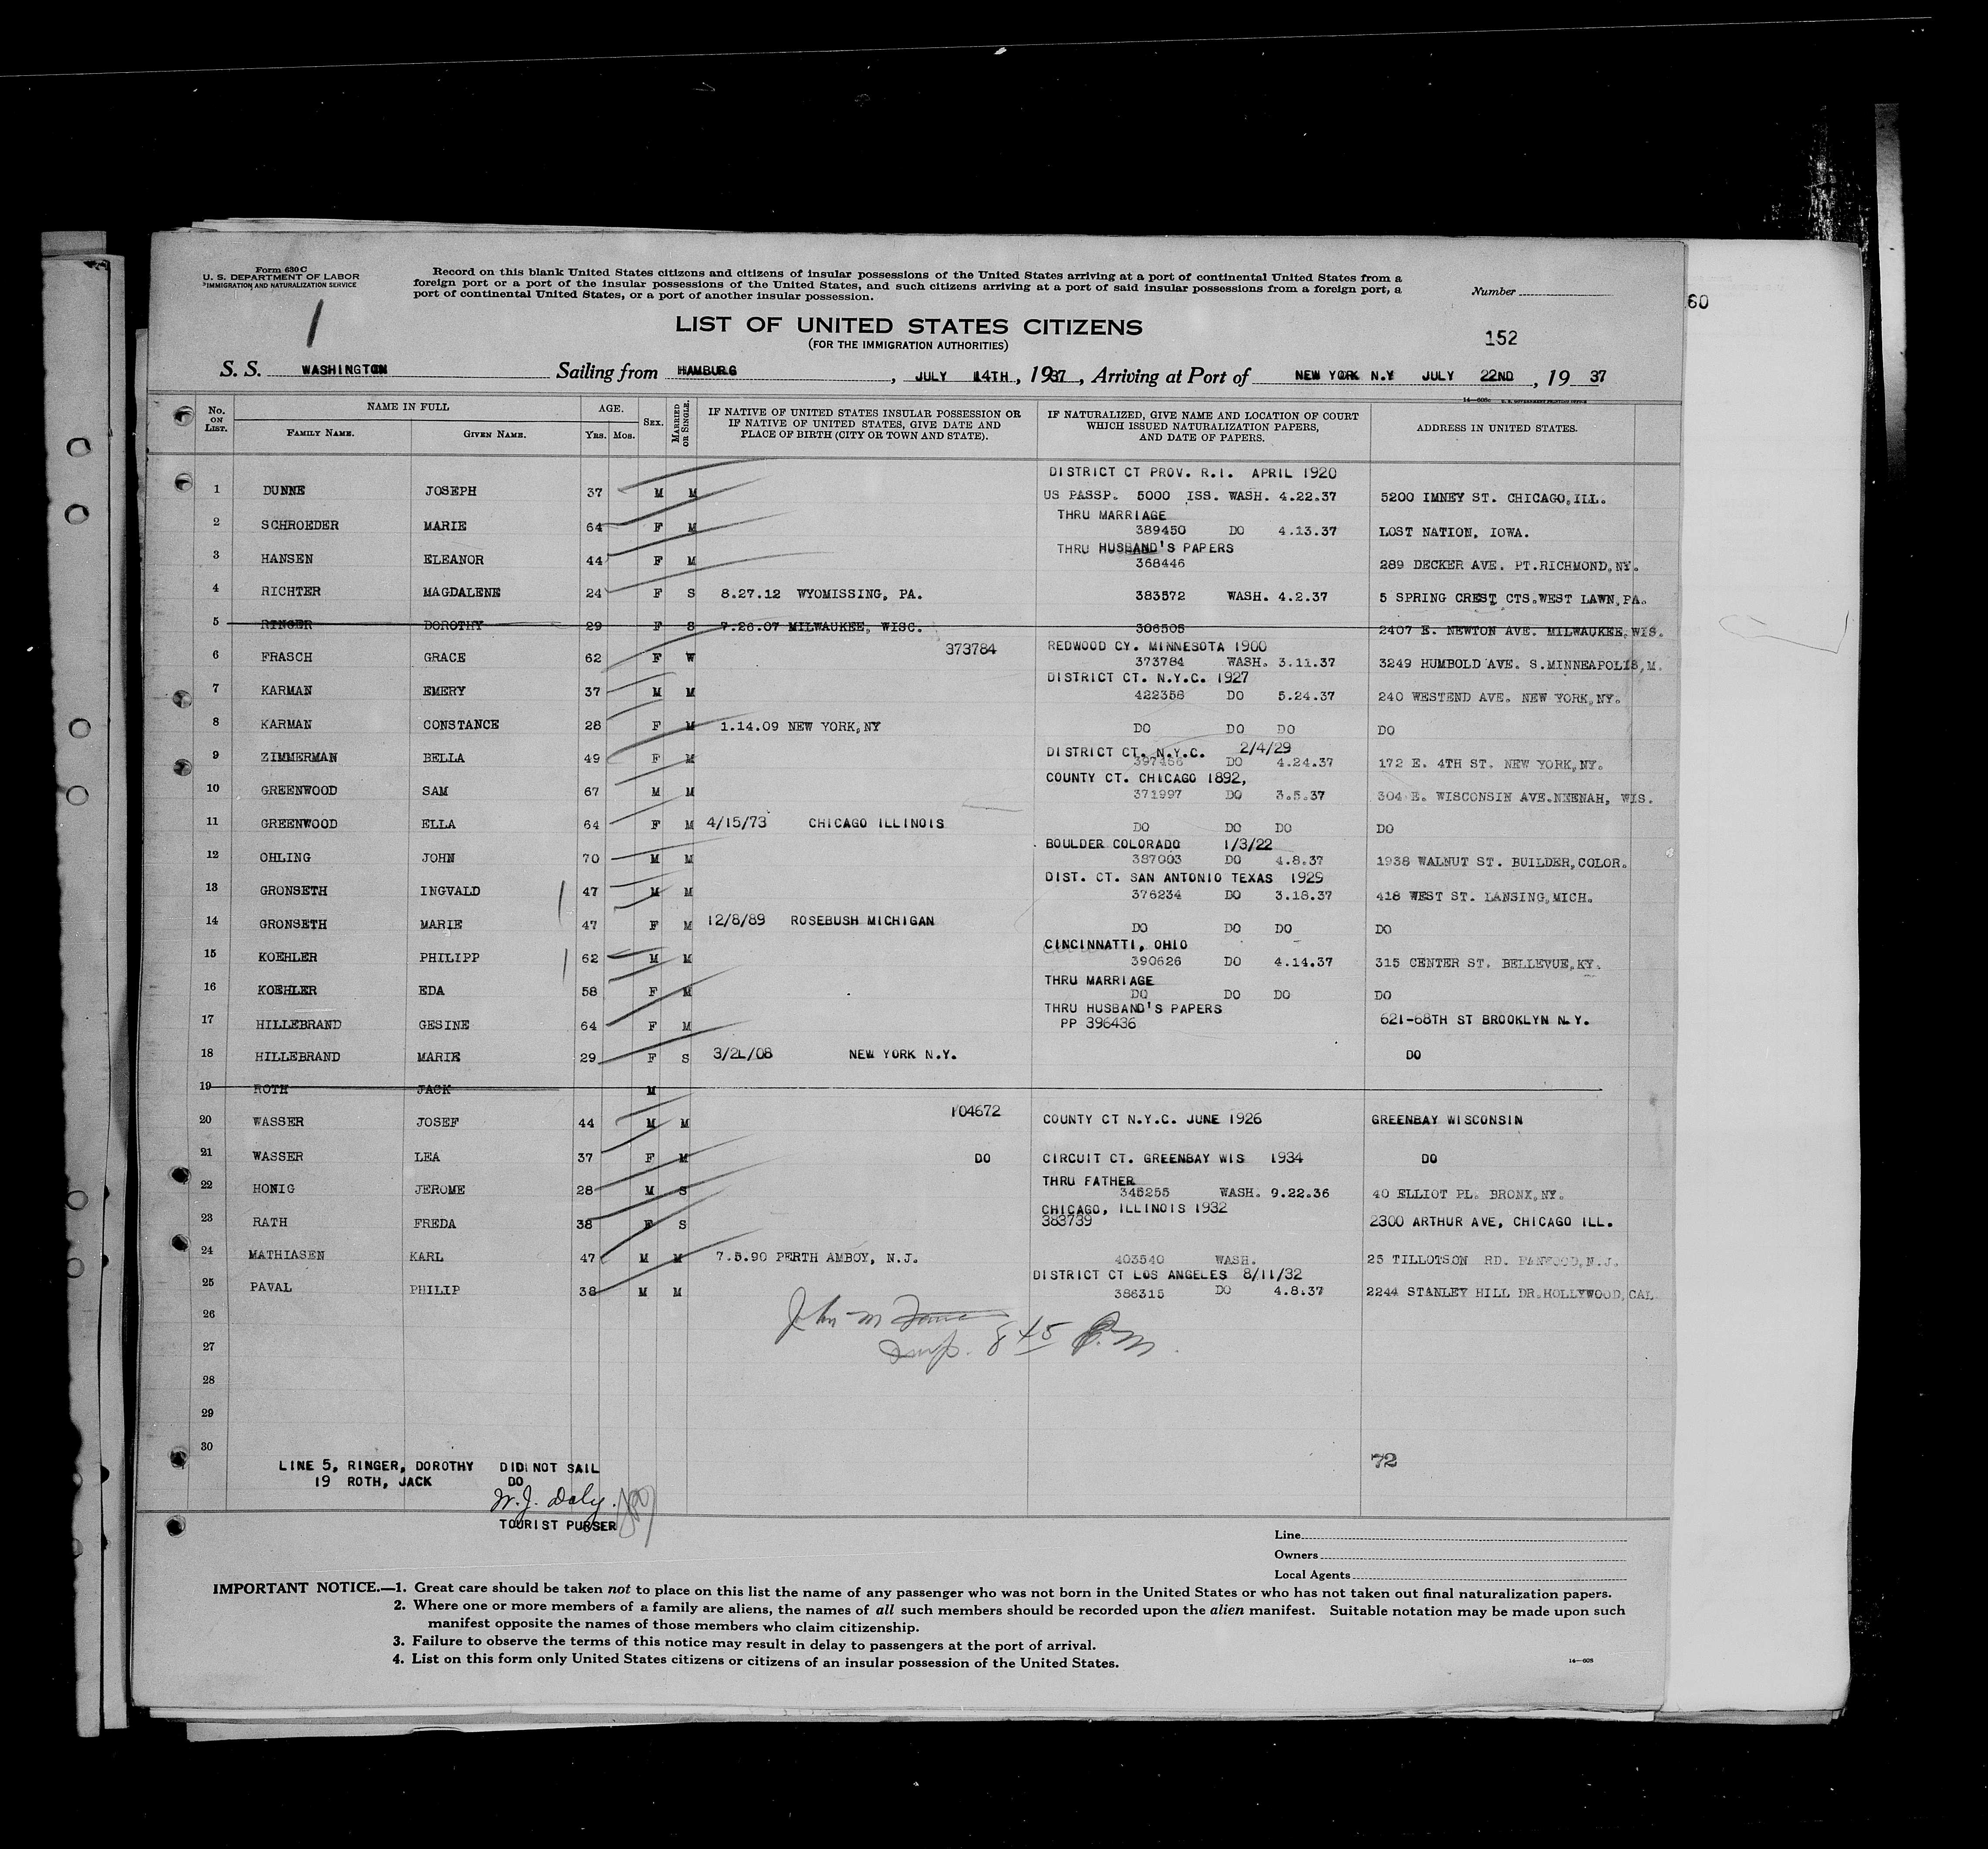 Form 630 C
U. S. DEPARTMENT OF LABOR
IMMIGRATION AND NATURALIZATION SERVICE
Record on this blank United States citizens and citizens of insular possessions of the United States arriving at a port of continental United States from a
foreign port or a port of the insular possessions of the United States, and such citizens arriving at a port of said insular possessions from a foreign port, a
port of continental United States, or a port of another insular possession.
Number
60
1
LIST OF UNITED STATES CITIZENS
(FOR THE IMMIGRATION AUTHORITIES)
152
S. S. WASHINGTON Sailing from HAMBURG, JULY 14TH, 1937, Arriving at Port of NEW YORK N.Y JULY 22ND, 19 37
No. ON LIST. NAME IN FULL FAMILY NAME. GIVEN NAME. AGE. YRS. MOS. SEX. MARRIED OR SINGLE. IF NATIVE OF UNITED STATES INSULAR POSSESSION OR IF NATIVE OF UNITED STATES, GIVE DATE AND PLACE OF BIRTH (CITY OR TOWN AND STATE). IF NATURALIZED, GIVE NAME AND LOCATION OF COURT WHICH ISSUED NATURALIZATION PAPERS, AND DATE OF PAPERS. ADDRESS IN UNITED STATES.
DISTRICT CT PROV. R.I. APRIL 1920
1 DUNNE JOSEPH 37 M M US PASSP. 5000 ISS. WASH. 4.22.37 5200 IMNEY ST. CHICAGO,ILL.
THRU MARRIAGE
2 SCHROEDER MARIE 64 F M 389450 DO 4.13.37 LOST NATION, IOWA.
THRU HUSBAND'S PAPERS
3 HANSEN ELEANOR 44 F M 368446 289 DECKER AVE. PT.RICHMOND,NY.
4 RICHTER MAGDALENE 24 F S 8.27.12 WYOMISSING, PA. 383572 WASH. 4.2.37 5 SPRING CREST CTS.WEST LAWN,PA.
5 RINGER DOROTHY 29 F S 7.26.07 MILWAUKEE, WISC. 306505 2407 E. NEWTON AVE. MILWAUKEE,WIS.
373784 REDWOOD CY. MINNESOTA 1900
6 FRASCH GRACE 62 F W 373784 WASH. 3.11.37 3249 HUMBOLD AVE. S.MINNEAPOLIS,M.
DISTRICT CT. N.Y.C. 1927
7 KARMAN EMERY 37 M M 422356 DO 5.24.37 240 WESTEND AVE. NEW YORK,NY.
8 KARMAN CONSTANCE 28 F M 1.14.09 NEW YORK,NY DO DO DO DO
DISTRICT CT. N.Y.C. 2/4/29
9 ZIMMERMAN BELLA 49 F M 397456 DO 4.24.37 172 E. 4TH ST. NEW YORK,NY.
COUNTY CT. CHICAGO 1892,
10 GREENWOOD SAM 67 M M 371997 DO 3.5.37 304 E. WISCONSIN AVE.NEENAH, WIS.
11 GREENWOOD ELLA 64 F M 4/15/73 CHICAGO ILLINOIS DO DO DO DO
BOULDER COLORADO 1/3/22
12 OHLING JOHN 70 M M 387003 DO 4.8.37 1938 WALNUT ST. BUILDER,COLOR.
DIST. CT. SAN ANTONIO TEXAS 1929
13 GRONSETH INGVALD 47 M M 376234 DO 3.18.37 418 WEST ST. LANSING,MICH.
14 GRONSETH MARIE 47 F M 12/8/89 ROSEBUSH MICHIGAN DO DO DO DO
CINCINNATTI, OHIO
15 KOEHLER PHILIPP 62 M M 390626 DO 4.14.37 315 CENTER ST. BELLEVUE,KY.
THRU MARRIAGE
16 KOEHLER EDA 58 F M DO DO DO DO
THRU HUSBAND'S PAPERS
17 HILLEBRAND GESINE 64 F M PP 396436 621-68TH ST BROOKLYN N.Y.
18 HILLEBRAND MARIE 29 F S 3/2L/08 NEW YORK N.Y. DO
19 ROTH JACK M
104672
20 WASSER JOSEF 44 M M COUNTY CT N.Y.C. JUNE 1926 GREENBAY WISCONSIN
21 WASSER LEA 37 F M DO CIRCUIT CT. GREENBAY WIS 1934 DO
THRU FATHER
22 HONIG JEROME 28 M S 345255 WASH. 9.22.36 40 ELLIOT PL. BRONX,NY.
CHICAGO, ILLINOIS 1932
23 RATH FREDA 38 F S 383739 2300 ARTHUR AVE, CHICAGO ILL.
24 MATHIASEN KARL 47 M M 7.5.90 PERTH AMBOY, N.J. 403540 WASH. 25 TILLOTSON RD. FANWOOD,N.J.
DISTRICT CT LOS ANGELES 8/11/32
25 PAVAL PHILIP 38 M M 386315 DO 4.8.37 2244 STANLEY HILL DR.HOLLYWOOD,CAL
26
John M
27
Insp. 8 45 P.M.
28
29
30
72
LINE 5, RINGER, DOROTHY DID NOT SAIL
19 ROTH, JACK DO
W.J. Daly.
TOURIST PURSER
Line
Owners
Local Agents
IMPORTANT NOTICE.—1. Great care should be taken not to place on this list the name of any passenger who was not born in the United States or who has not taken out final naturalization papers.
2. Where one or more members of a family are aliens, the names of all such members should be recorded upon the alien manifest. Suitable notation may be made upon such
manifest opposite the names of those members who claim citizenship.
3. Failure to observe the terms of this notice may result in delay to passengers at the port of arrival.
4. List on this form only United States citizens or citizens of an insular possession of the United States.
14—608